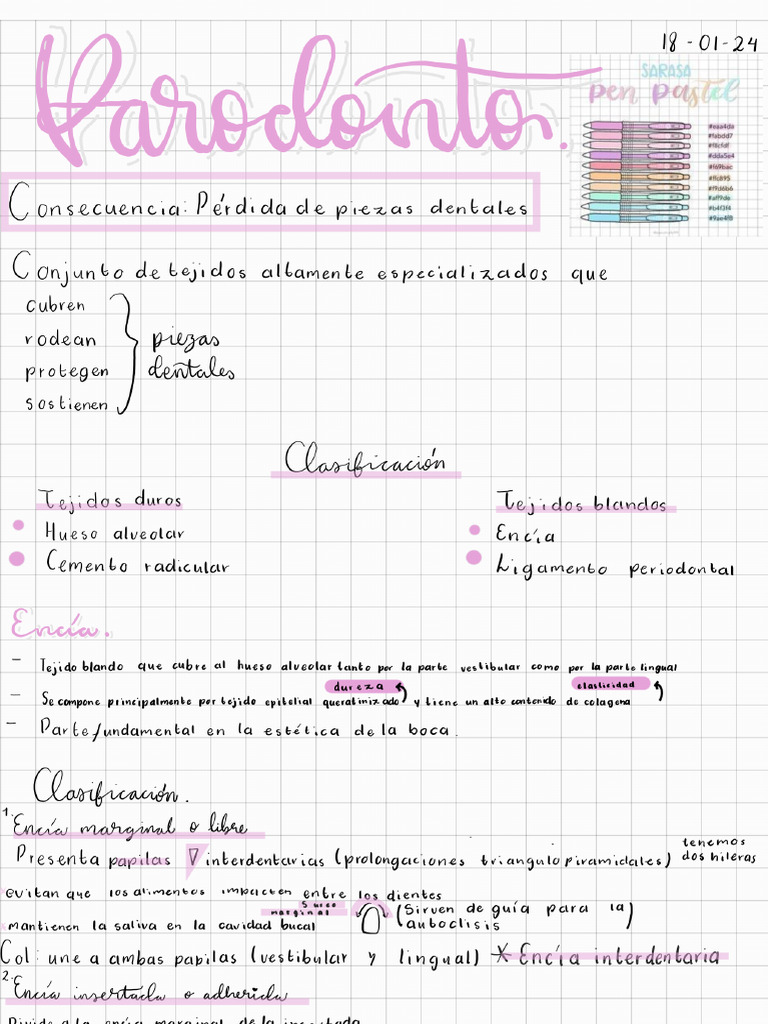 18-01-24
Parodonto.
SARASA
pen pastel
#eaa4da
#fabdd7
#f8cfdf
#dda5e4
#f69bac
#ffc895
#f9d6b6
#aff9de
#b4f3f4
#9ae4f8
Consecuencia: Pérdida de piezas dentales
Conjunto de tejidos altamente especializados que
cubren
rodean
protegen
sostienen
piezas
dentales
Clasificación
Tejidos duros
Hueso alveolar
Cemento radicular
Tejidos blandos
Encía
Ligamento periodontal
Encía.
- Tejido blando que cubre al hueso alveolar tanto por la parte vestibular como por la parte lingual
dureza
elasticidad
- Se compone principalmente por tejido epitelial queratinizado y tiene un alto contenido de colagena
- Parte fundamental en la estética de la boca.
Clasificación.
1. Encía marginal o libre
Presenta papilas interdentarias (prolongaciones triangulo piramidales) tenemos
dos hileras
evitan que los alimentos impacten entre los dientes
surco
marginal
mantienen la saliva en la cavidad bucal
(Sirven de guía para la
autoclisis)
Col: une a ambas papilas (vestibular y lingual) * Encía interdentaria
2. Encía insertada o adherida
Divide a la encía marginal de la insertada